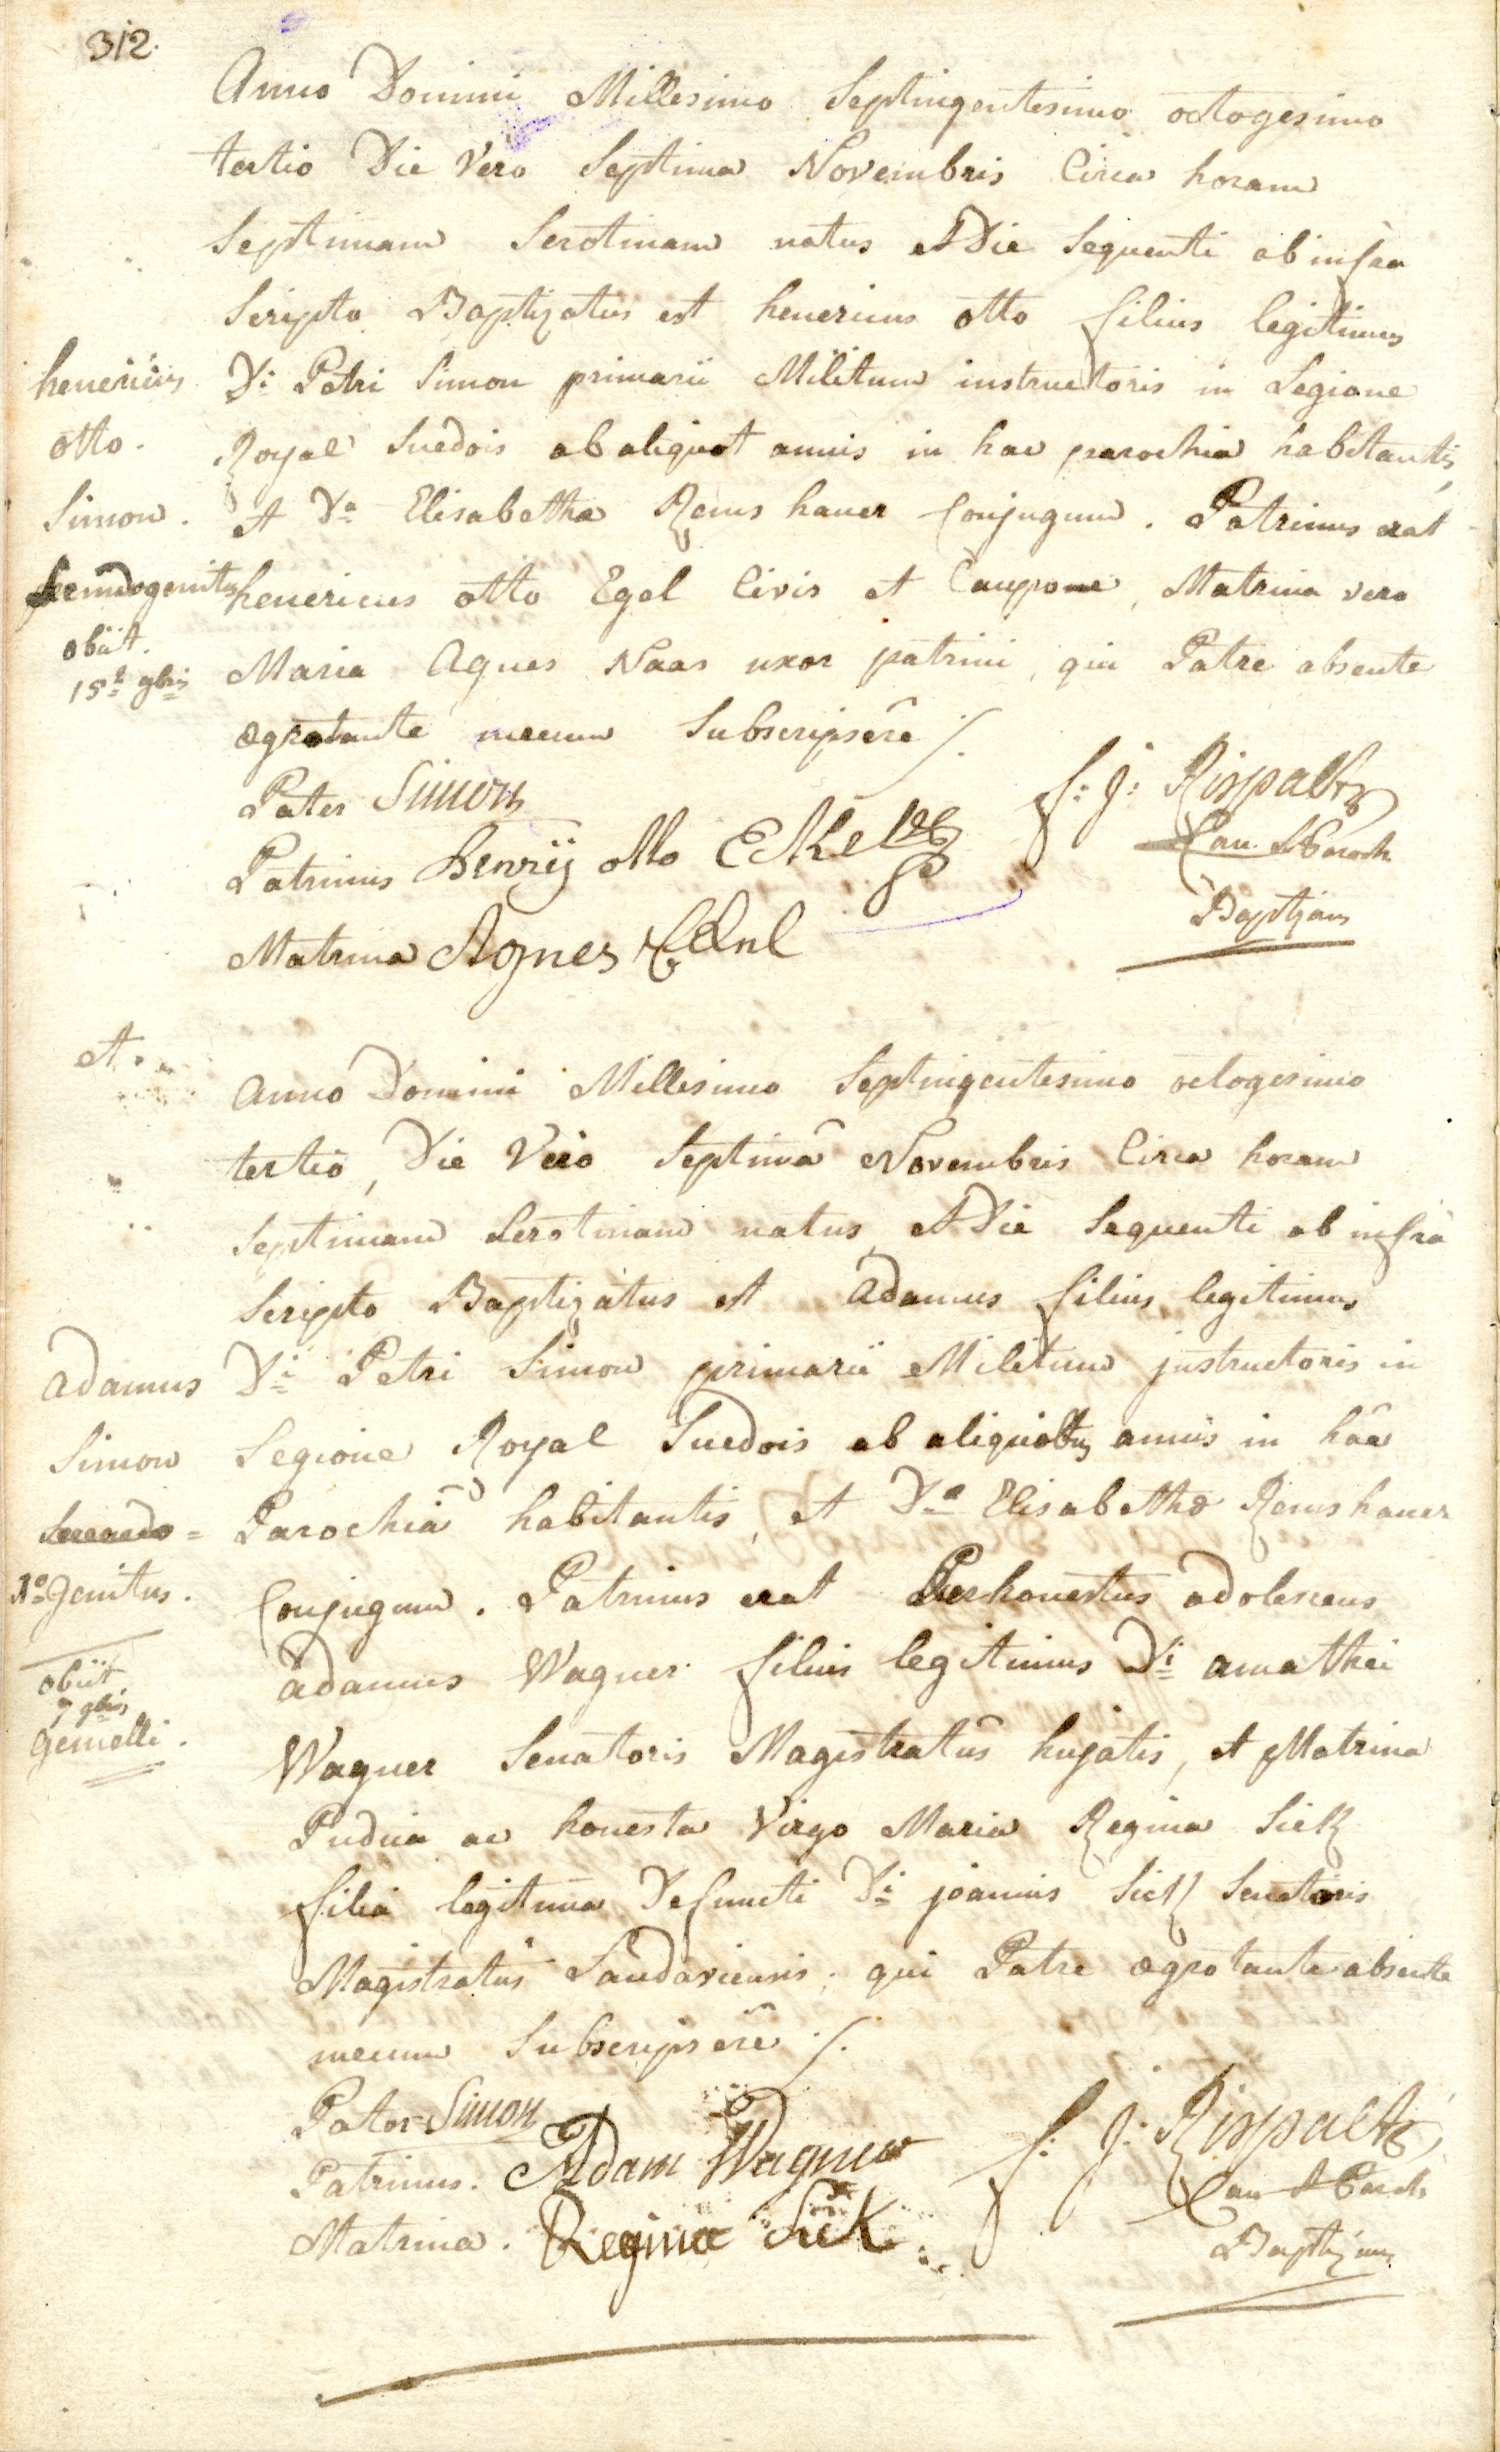 312.
Anno Domini Millesimo Septingentesimo octogesimo
tertio Die Vero Septima Novembris Circa horam
Septimam Serotinam natus et Die Sequenti ab infra
Scripto Baptizatus est henericus otto filius legitimus
henericus
Di Petri Simon primarii Militum instructoris in Legione
otto.
Royal Suedois ab aliquot annis in hac parochia habitantis,
Simon.
et Da Elisabetha Remshauer Conjugum. Patrinus erat
secundogenitus
henericus otto Egel Civis et Caupone, Matrina vero
obiit.
15a 9bris
Maria Agnes Naas uxor patrini, qui Patre absente
ægrotante mecum Subscripsere ./.
Pater Simon
Patrinus Henrÿ otto
Matrina Agnes
f: J: Rispaltz
Can. et Paroch
Baptizans
et.
Anno Domini Millesimo Septingentesimo octogesimo
tertio, Die Vero Septimâ Novembris Circa horam
Septimam Serotinam natus, et Die Sequenti ab infrà
Scripto Baptizatus est Adamus filius legitimus
Adamus
Di Petri Simon primarii Militum instructoris in
Simon
Legione Royal Suedois ab aliquotus annis in hâc
Secundo=
Parochiâ habitantis, et Da Elisabetha Remshauer
1o Genitus.
Conjugum. Patrinus erat Perhonestus adolescens
obiit
7 9bris
adamus Wagner filius legitimus Di amathei
Gemelli.
Wagner Senatoris Magistratûs hujatis, et Matrina
Pudica ac honesta Virgo Maria Regina Sick
filia legitima Defuncti Di joannis Sick Senatoris
Magistratus Landaviensis, qui Patre ægrotante absente
mecum Subscripsere ./.
Pater Simon
Patrinus. Adam Wagner
Matrina. Regina Sick
f: J: Rispaltz
Can et Paroch
Baptizans